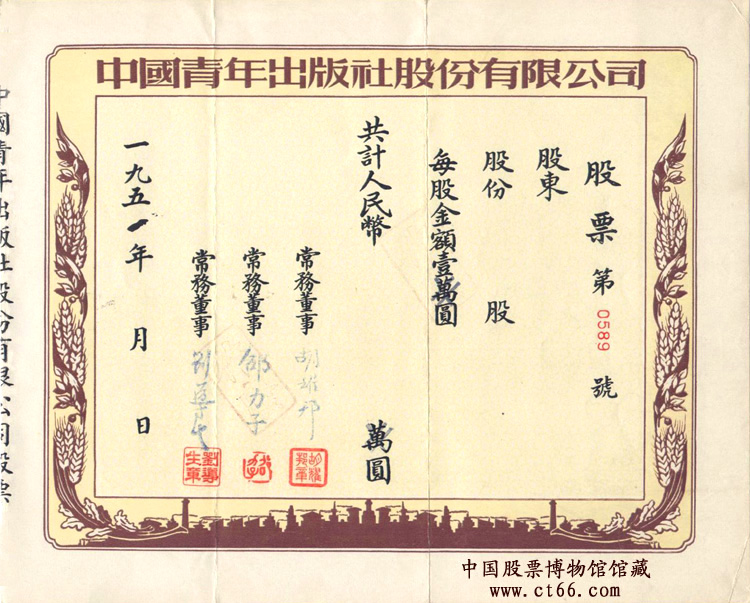 中國青年出版社股份有限公司
股票第0589號
股東
股份 股
每股金額壹萬圓
共計人民幣 萬圓
常務董事 胡耀邦
常務董事 邵力子
常務董事 劉導生
一九五一年 月 日
劉導生章
中國青年出版社股份有限公司股票
中国股票博物馆馆藏
www.ct66.com